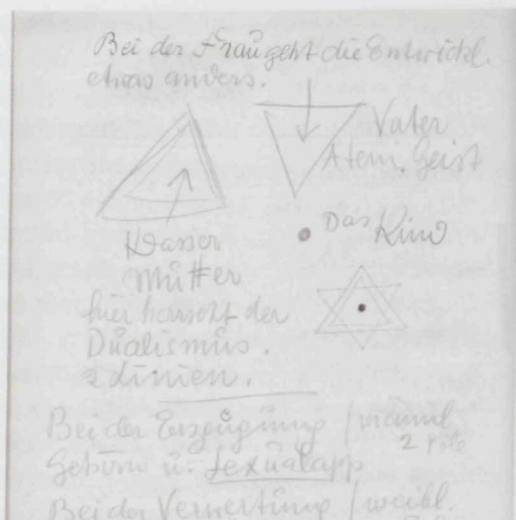 Bei der Frau geht die Entwickl.
etwas anders.
Vater
Atem. Geist
Das Kind
Wasser
Mutter
hier herrscht der
Dualismus.
2 Linien.
Bei der Erzeugung / männl
2 Pole
Gehirn u. Sexualapp
Bei der Verwertung / weibl.